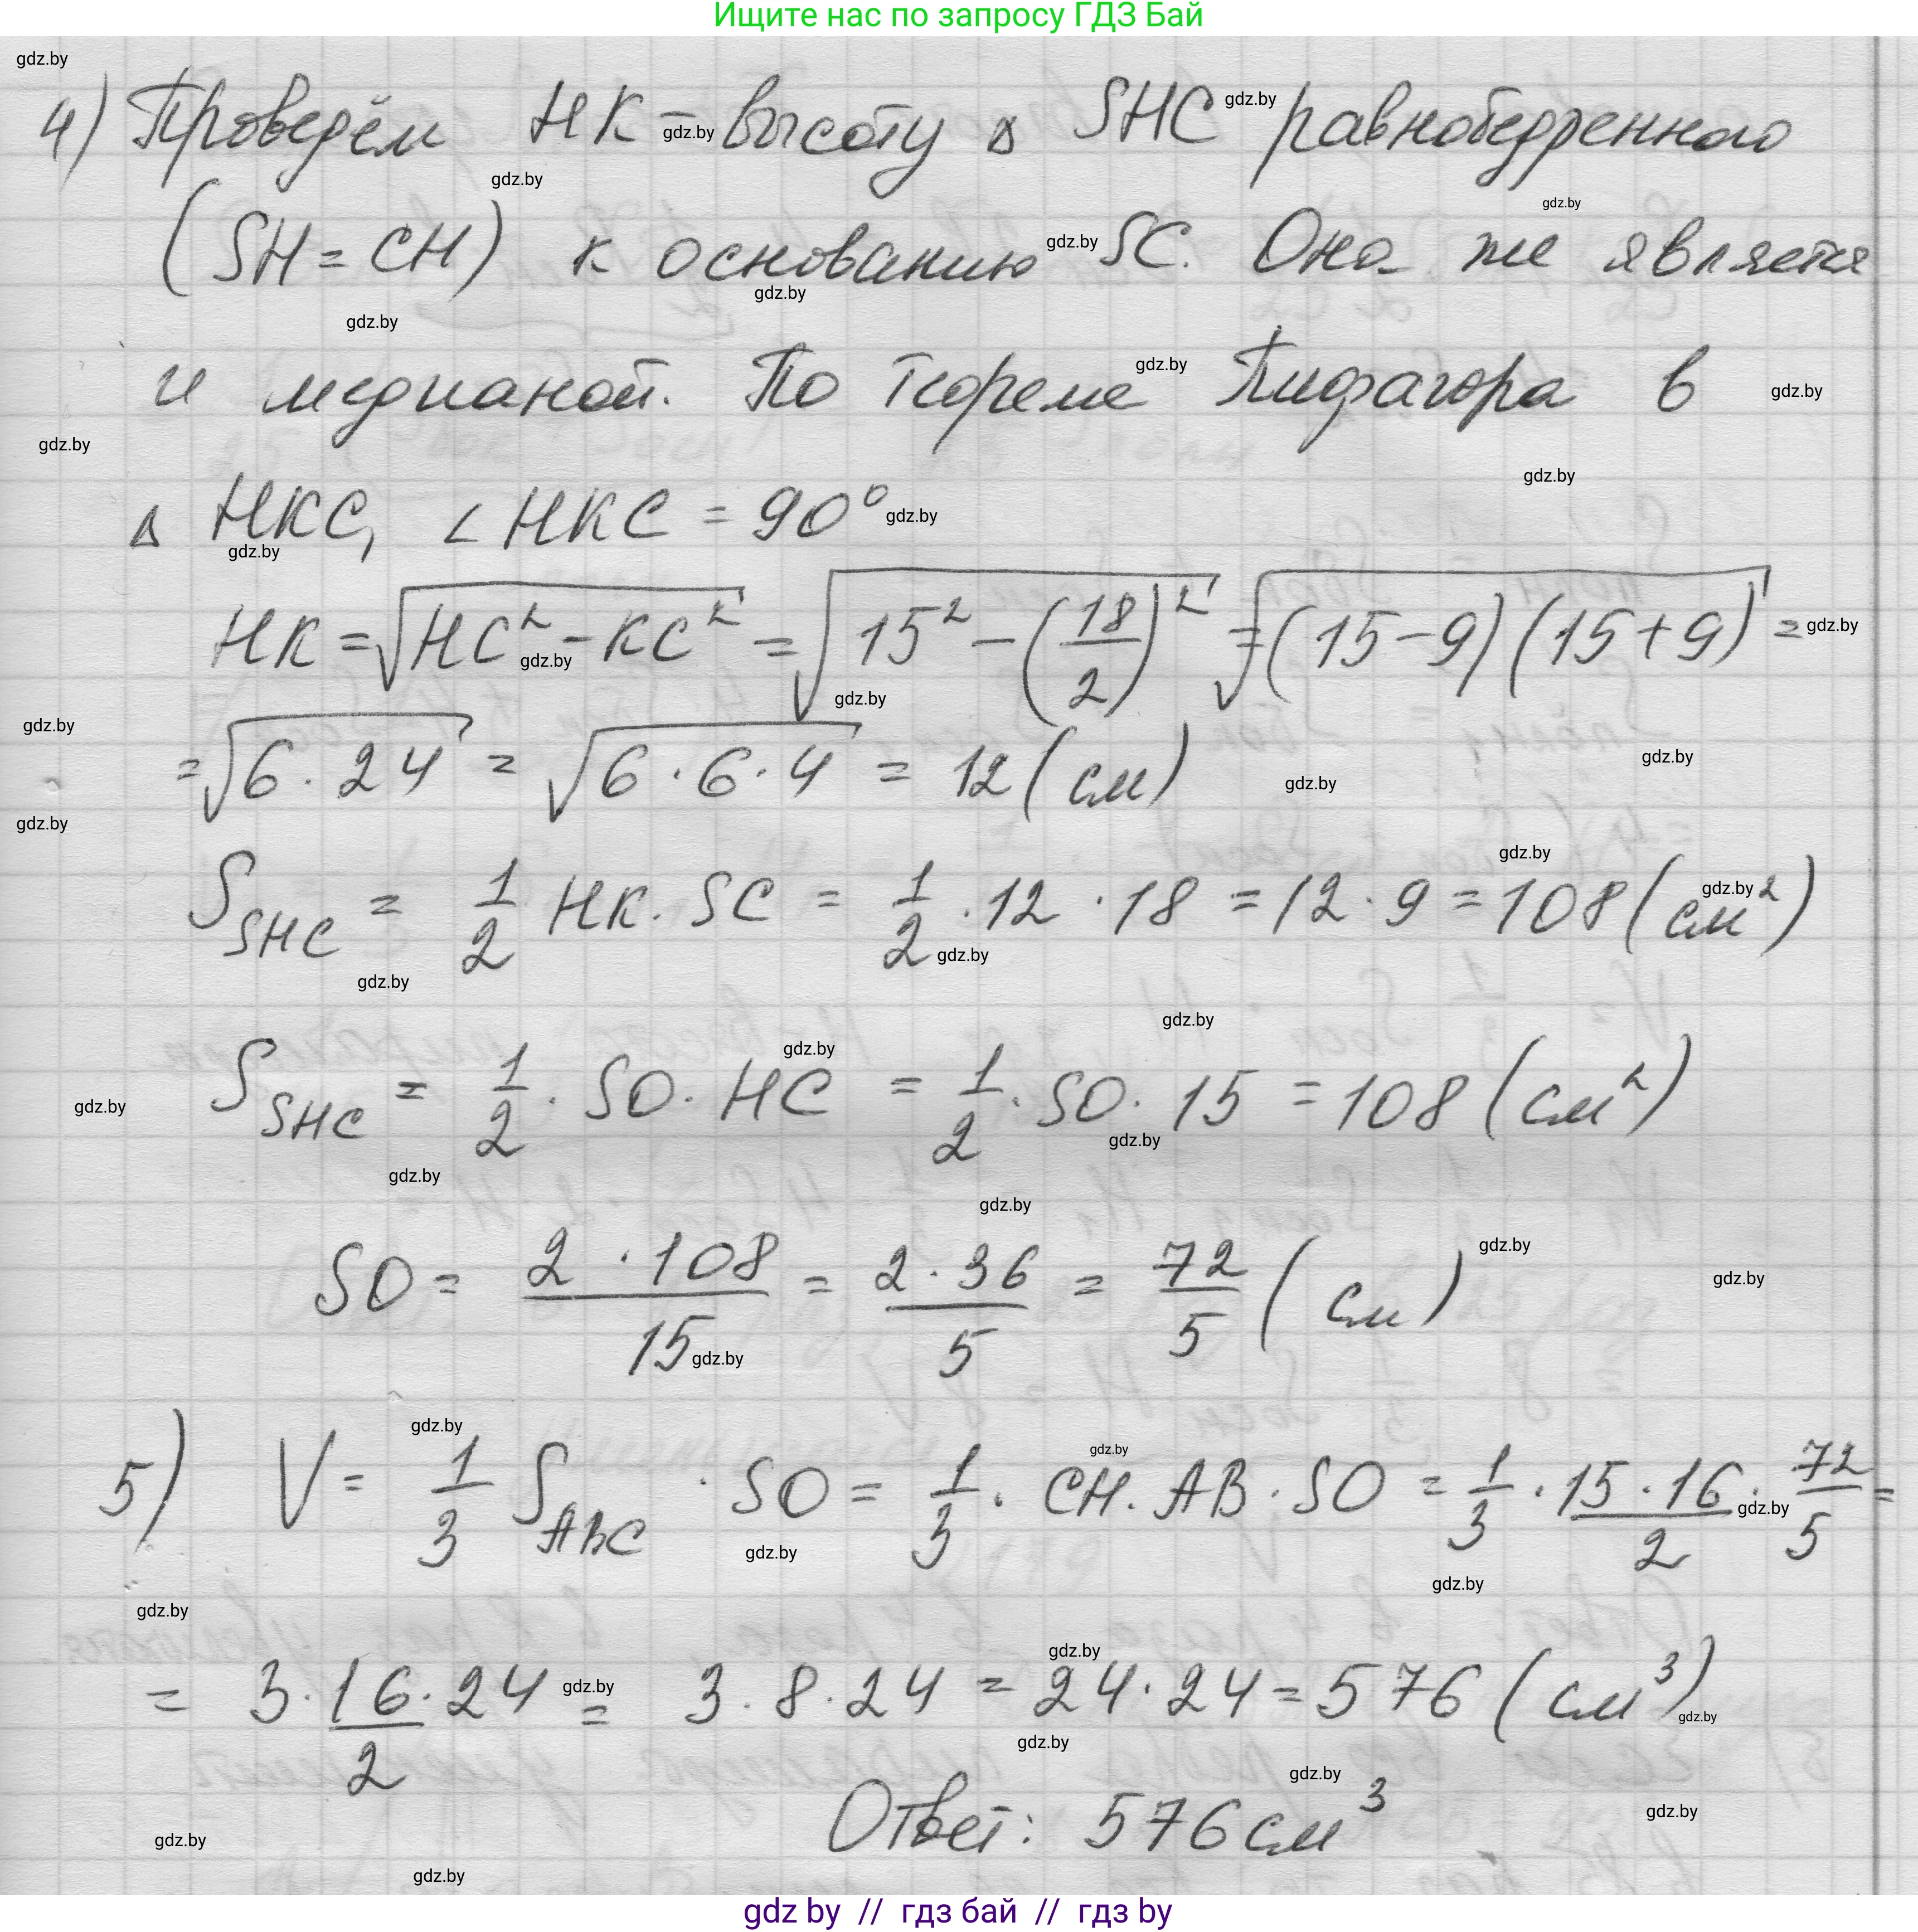 Ищите нас по запросу ГДЗ Бай
4) Проведём НК - высоту Δ SHC равнобедренного
(SH = CH) к основанию SC. Она же является
и медианой. По теореме Пифагора в
Δ HKC, ∠HKC = 90°
HK = √(HC² - KC²) = √(15² - (18/2)²) = √((15-9)(15+9)) =
= √(6 · 24) = √(6 · 6 · 4) = 12 (см)
S_SHC = 1/2 HK · SC = 1/2 · 12 · 18 = 12 · 9 = 108 (см²)
S_SHC = 1/2 · SO · HC = 1/2 · SO · 15 = 108 (см²)
SO = (2 · 108)/15 = (2 · 36)/5 = 72/5 (см)
5) V = 1/3 S_ABC · SO = 1/3 · CH · AB · SO = 1/3 · (15 · 16)/2 · 72/5 =
= 3 · 16/2 · 24 = 3 · 8 · 24 = 24 · 24 = 576 (см³)
Ответ: 576 см³
gdz by // гдз бай // гдз by